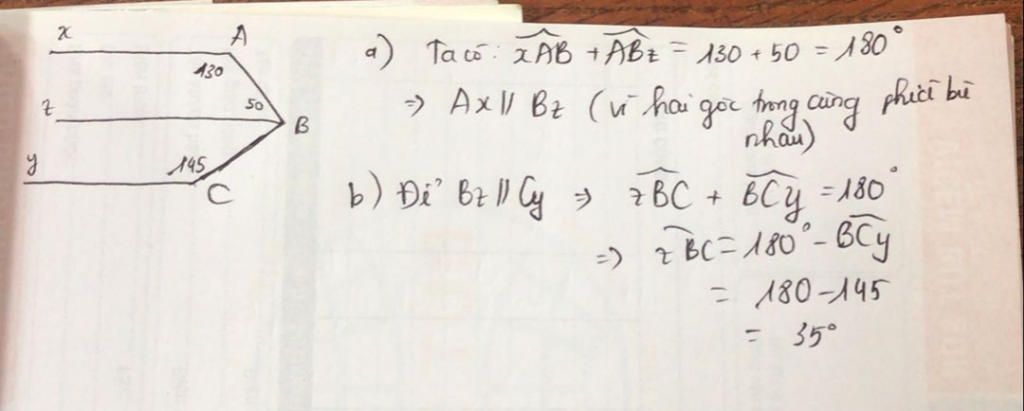 x A
130
z 50 B
y 145
C
a) Ta có: xAB + ABz = 130 + 50 = 180°
=> Ax // Bz (vì hai góc trong cùng phía bù
nhau)
b) Để Bz // Cy => zBC + BCy = 180°
=> zBC = 180° - BCy
= 180 - 145
= 35°